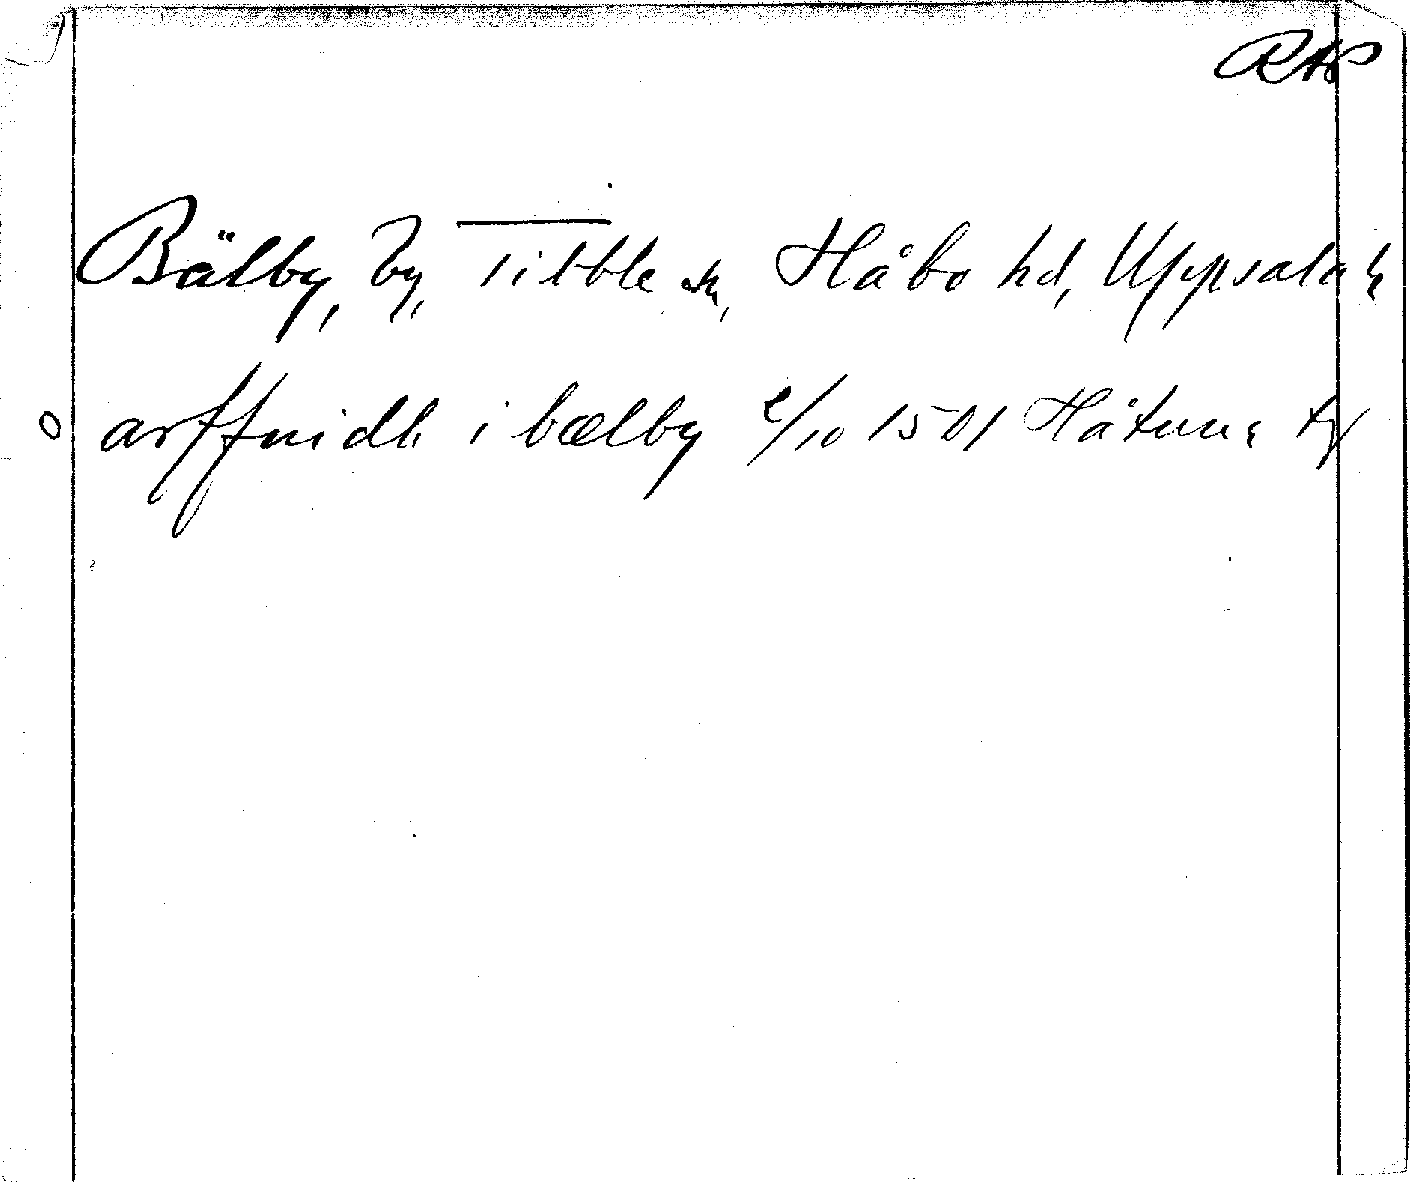 RAP
Bälby, by, Tibble sn, Håbo hd, Uppsala l
arffuidh i bælby 2/10 1501 Håtuna ty